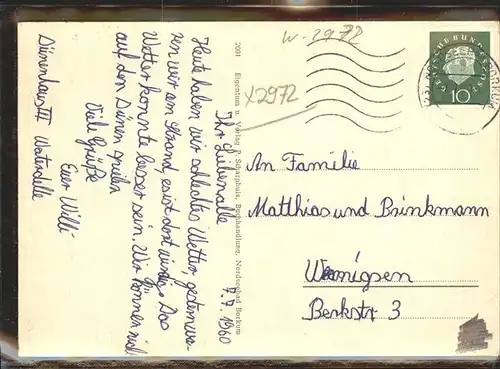 W-2972
X2972
DEUTSCHE BUNDESPOST
10
7.7.1960
Ihr Lieben alle
Heute haben wir schlechtes Wetter, gestern wa-
ren wir am Strand, es ist dort windig. Das
Wetter konnte besser sein. Wir können viel
auf den Dünen spielen
Viele Grüße
Euer Willi
Dünenhaus III Waterdelle
2091 Eigentum u. Verlag Buchhandlung, Nordseebad Borkum
An Familie
Matthias und Brinkmann
Wennigsen
Berkstr 3